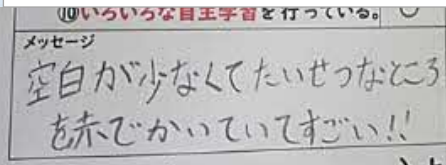 ⑩いろいろな自主学習を行っている。 ○
メッセージ
空白が少なくてたいせつなところ
を赤でかいていてすごい!!